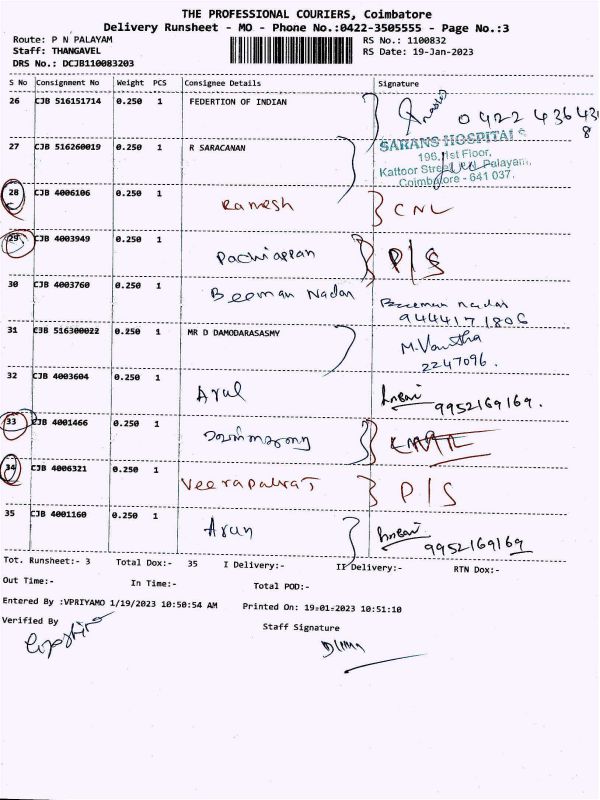 THE PROFESSIONAL COURIERS, Coimbatore
Delivery Runsheet - MO - Phone No.:0422-3505555 - Page No.:3
Route: P N PALAYAM
Staff: THANGAVEL
DRS No.: DCJB110083203
RS No.: 1100832
RS Date: 19-Jan-2023
S No Consignment No Weight PCS Consignee Details Signature
26 CJB 516151714 0.250 1 FEDERTION OF INDIAN
0422 436431
8
27 CJB 516260019 0.250 1 R SARACANAN
SARANS HOSPITALS
196, 1st Floor,
Kattoor Street, Palayam,
Coimbatore - 641 037.
28 CJB 4006106 0.250 1 Ramesh CNL
29 CJB 4003949 0.250 1 Pachiappan P/S
30 CJB 4003760 0.250 1 Beeman Nadar Beeman nadar
9444171806
31 CJB 516300022 0.250 1 MR D DAMODARASASMY M. Vanitha
2247096.
32 CJB 4003604 0.250 1 Arul 9952169169.
33 CJB 4001466 0.250 1
34 CJB 4006321 0.250 1 P/S
35 CJB 4001160 0.250 1 Arun 9952169169
Tot. Runsheet:- 3 Total Dox:- 35 I Delivery:- II Delivery:- RTN Dox:-
Out Time:- In Time:- Total POD:-
Entered By :VPRIYAMO 1/19/2023 10:50:54 AM Printed On: 19-01-2023 10:51:10
Verified By Staff Signature